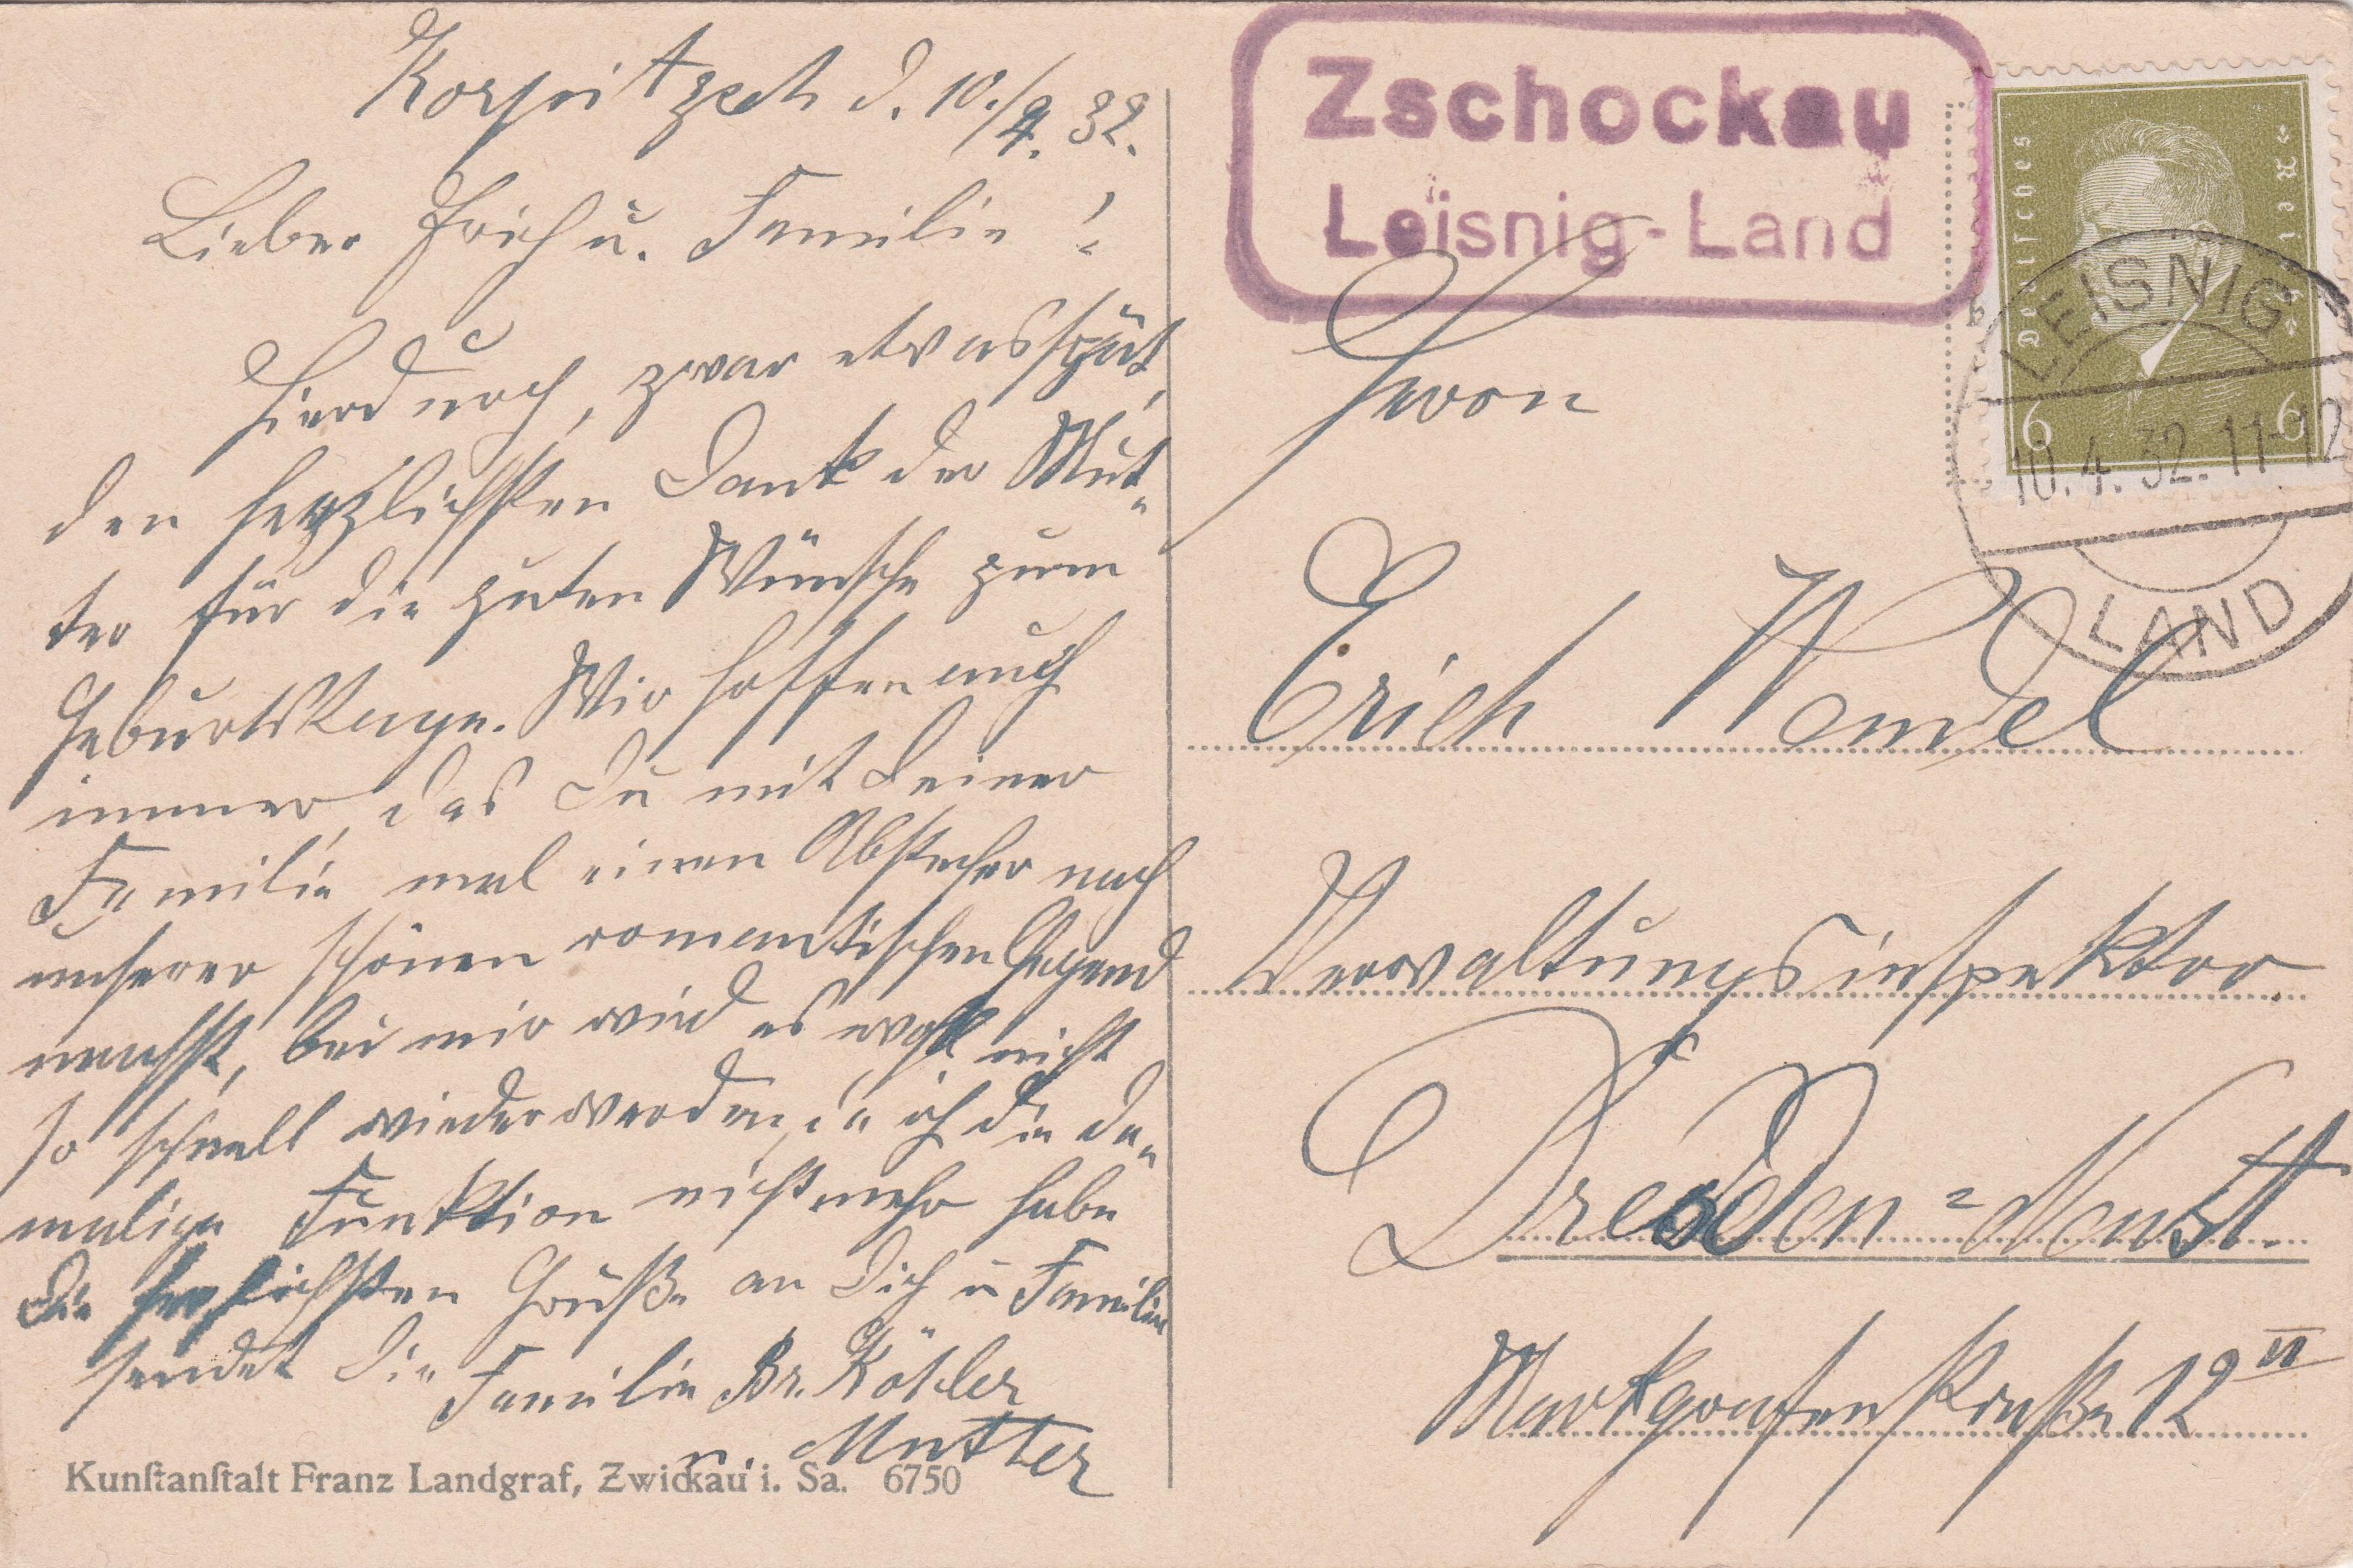 Korpitzsch d. 10./4. 32.
Lieber Erich u. Familie!
Hierdurch, zwar etwas spät,
den herzlichsten Dank der Mut-
ter für die guten Wünsche zum
Geburtstage. Wir hoffen auch
immer, das Du mit Deiner
Familie mal einen Abstecher nach
unserer schönen romantischen Gegend
machst, bei mir wird es wohl nicht
so schnell wieder werden, da ich die da-
malige Funktion nicht mehr habe
Die herzlichsten Grüße an Dich u Familie
sendet Die
Familie Br. Köhler
u. Mutter
Kunſtanſtalt Franz Landgraf, Zwickau i. Sa. 6750
Zschockau
Leisnig-Land
Deutſches Reich
6 6
LEISNIG
10.4.32.11-12
LAND
Herrn
Erich Wendel
Verwaltungsinspektor
Dresden=Neust.
Markgrafenstraße 12 II